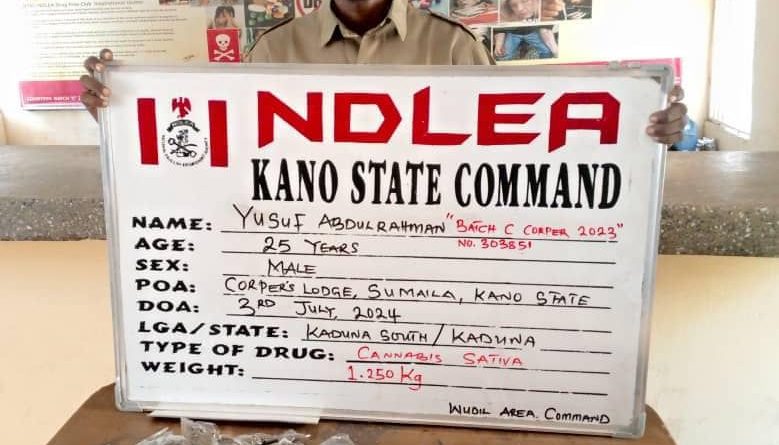 NDLEA
KANO STATE COMMAND
NAME: YUSUF ABDULRAHMAN "BATCH C CORPER 2023"
NO. 303851
AGE: 25 YEARS
SEX: MALE
POA: CORPER'S LODGE, SUMAILA, KANO STATE
DOA: 3RD JULY, 2024
LGA/STATE: KADUNA SOUTH/KADUNA
TYPE OF DRUG: CANNABIS SATIVA
WEIGHT: 1.250 Kg
WUDIL AREA. COMMAND